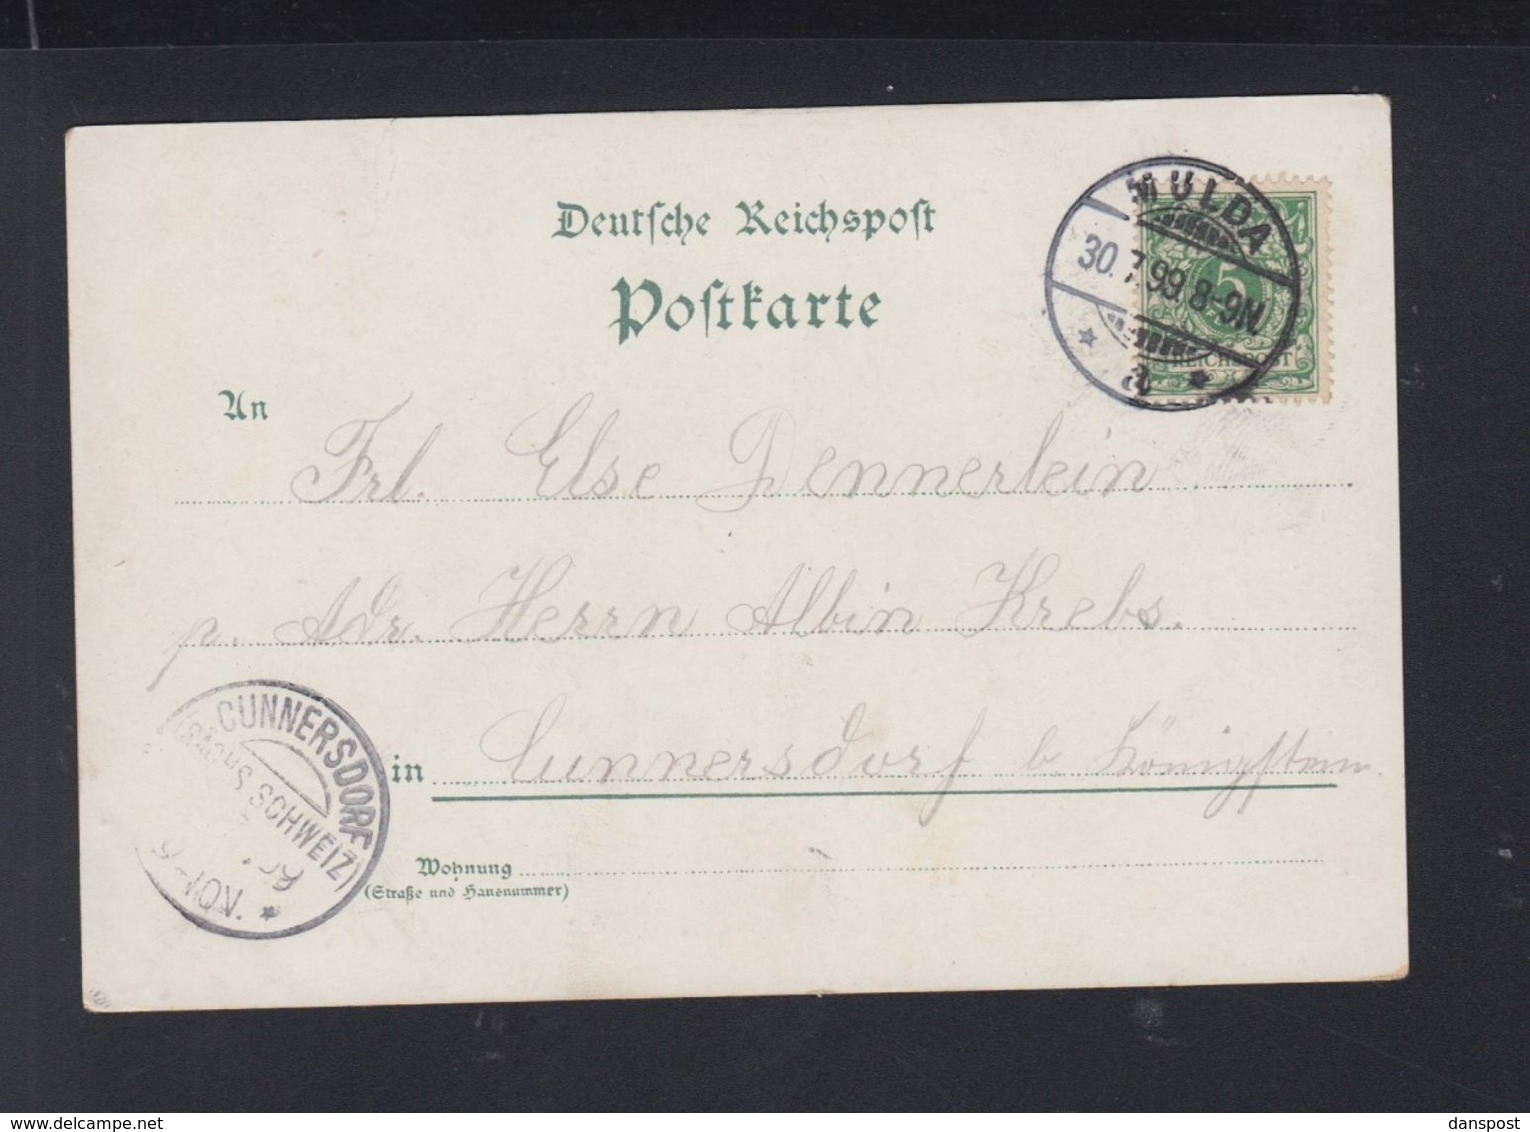 Deutsche Reichspost
Postkarte
MULDA
30.7.99.8-9N.
a
5
REICHSPOST
An Frl. Else Dennerlein
p. Adr. Herrn Albin Krebs.
in Cunnersdorf b. Königstein.
CUNNERSDORF
(SÄCHS SCHWEIZ)
99
Wohnung
(Straße und Hausnummer)
delcampe.net
danspost